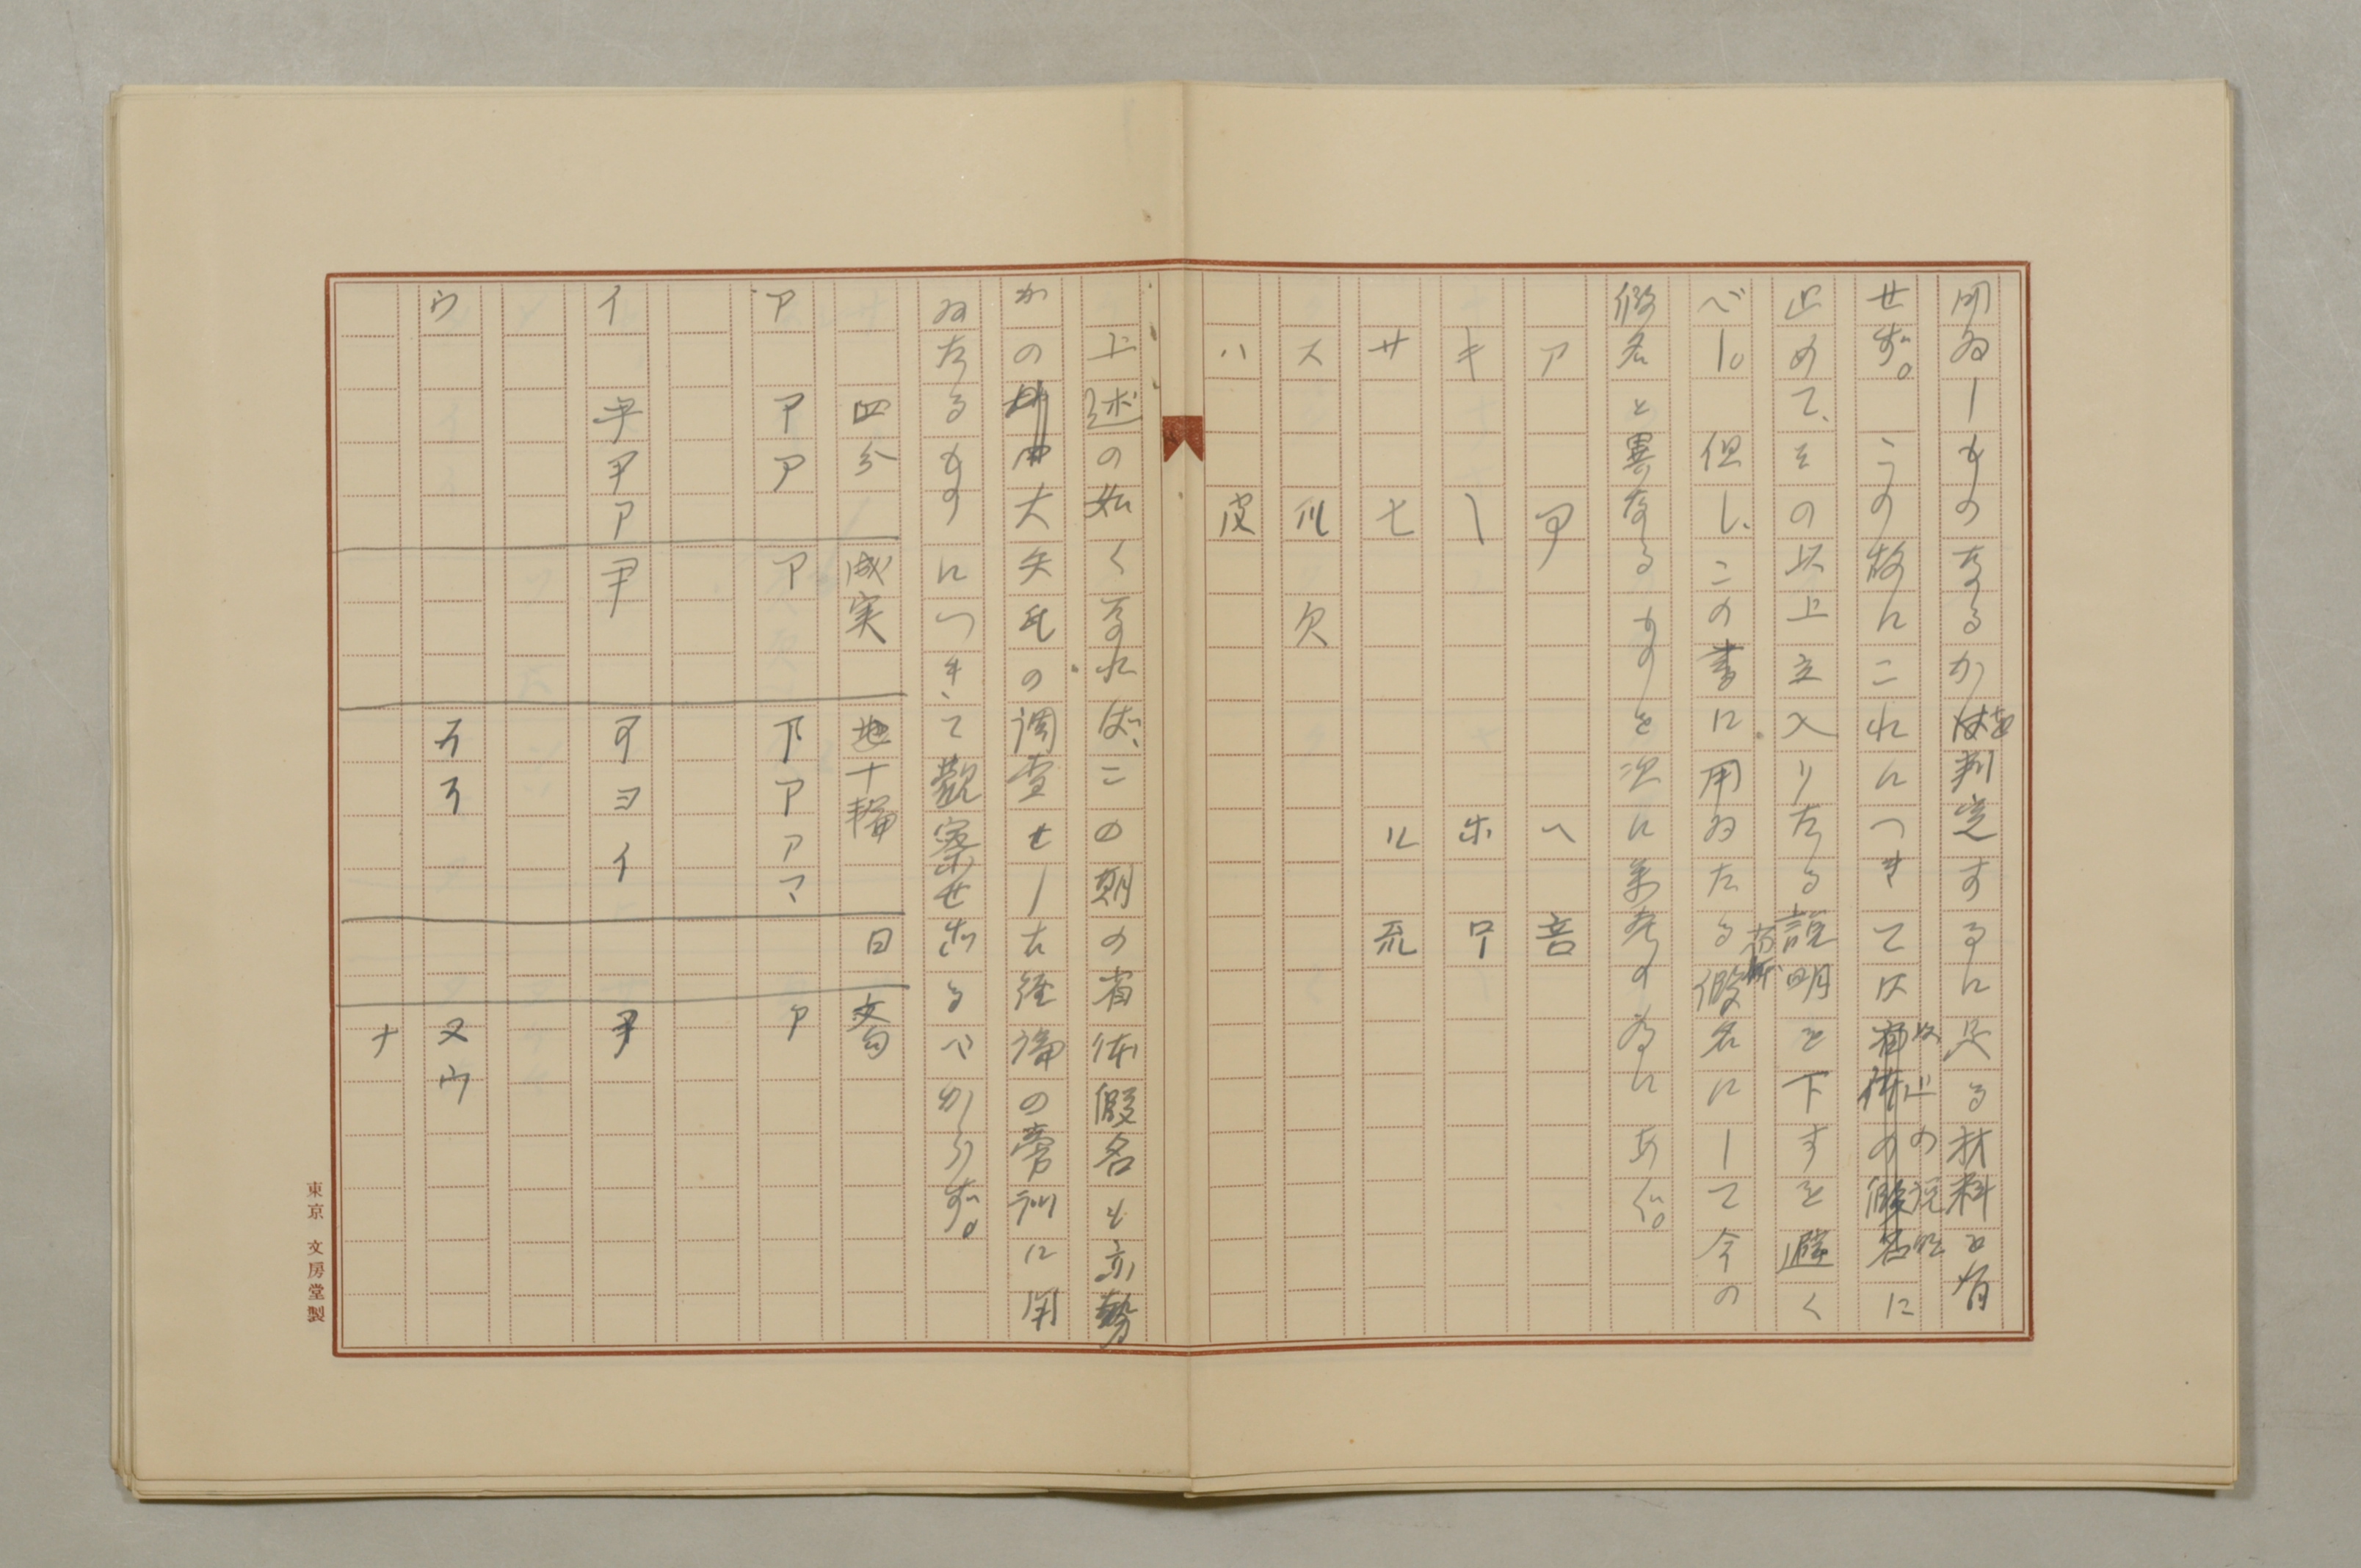 用ゐしものなるかを判定するに足る材料を有
せず。この故にこれにつきては以上の説明に
止めて、その以上立入りたる説明を下すを避く
べし。但し、この書に用ゐたる假名にして今の
假名と異なるものを次に參考の為にあぐ。
ア　ヘ　音
キ　ホ　ワ
サ　七　ル　流
ス　爪　欠
ハ　皮
上述の如くなれば、この期の省体假名も亦勢
かの大矢氏の調査せし古經論の旁訓に用
ゐたるものにつきて觀察せざるべからず。
四分　成実　地十輪　日　文句
ア　ア　ア　ア　ア　ア　ア
イ　ア　ヨ　イ
ウ　ヌ　ウ
ナ
東京　文房堂製